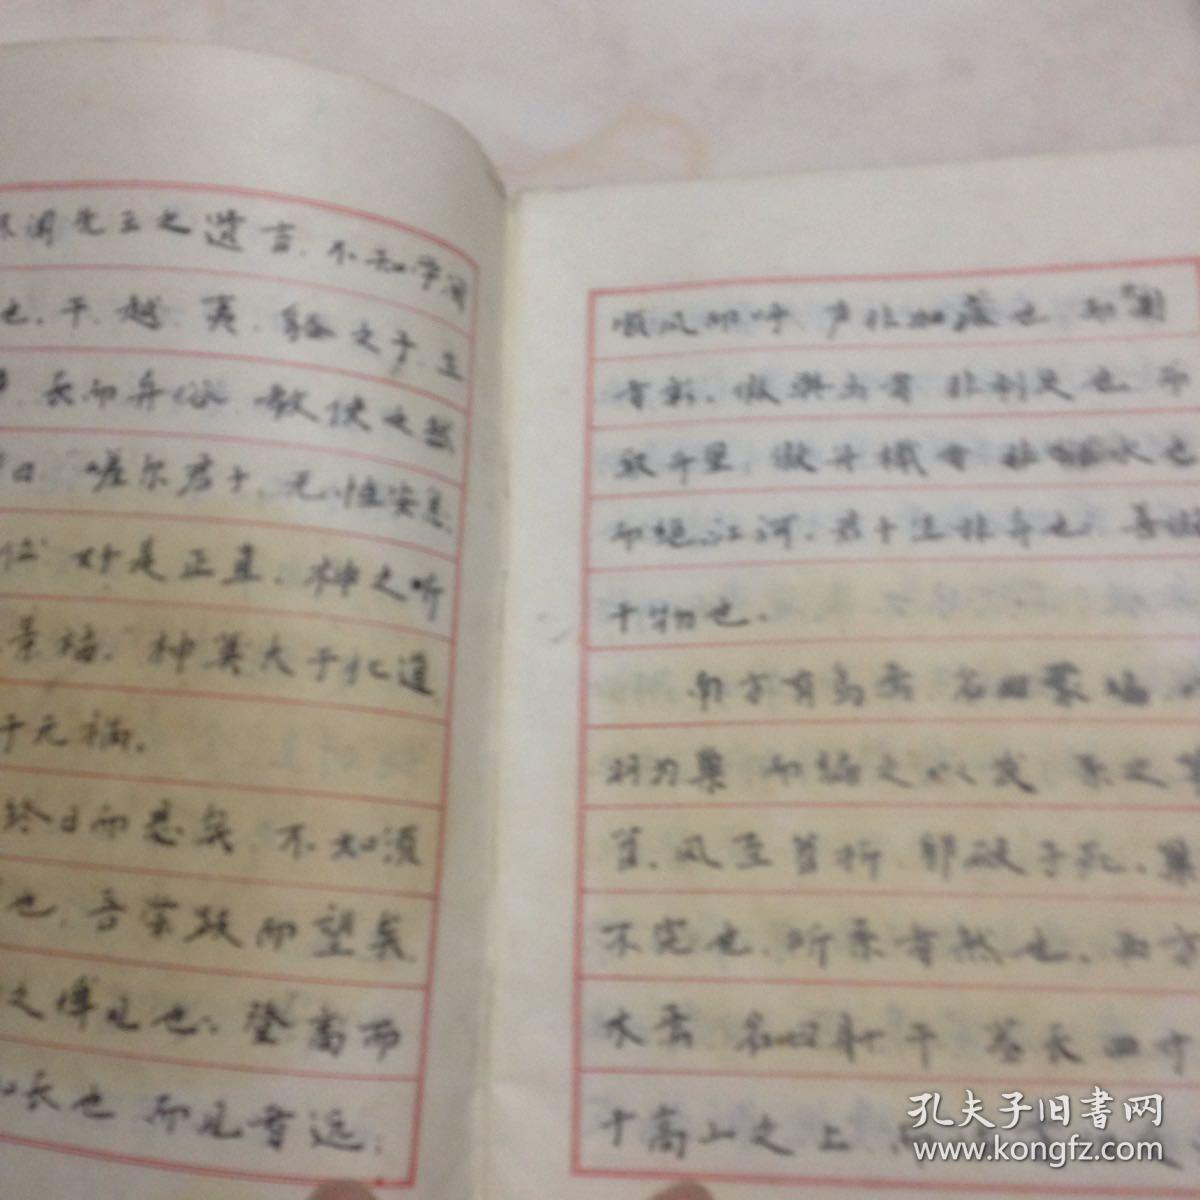 不闻先王之遗言，不知学问
也，干、越、夷、貉之子，生
，长而异俗，教使之然
曰：嗟尔君子，无恒安息，
位，好是正直，神之听
景福，神莫大于化道，
于无祸。
终日而思矣，不知须
也，吾尝跂而望矣，
之博见也；登高而
加长也，而见者远；
顺风而呼，声非加疾也，而闻
者彰，假舆马者，非利足也，而
致千里，假舟楫者，非能水也，
而绝江河，君子生非异也，善假
于物也。
南方有鸟焉，名曰蒙鸠，以
羽为巢，而编之以发，系之苇
苕，风至苕折，卵破子死，巢非
不完也，所系者然也，西方
木焉，名曰射干，茎长四寸
于高山之上，而
孔夫子旧书网
www.kongfz.com